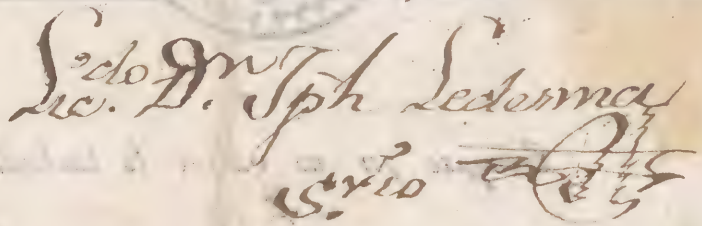 Licdo. Dn. Jph Ledesma
S.rio